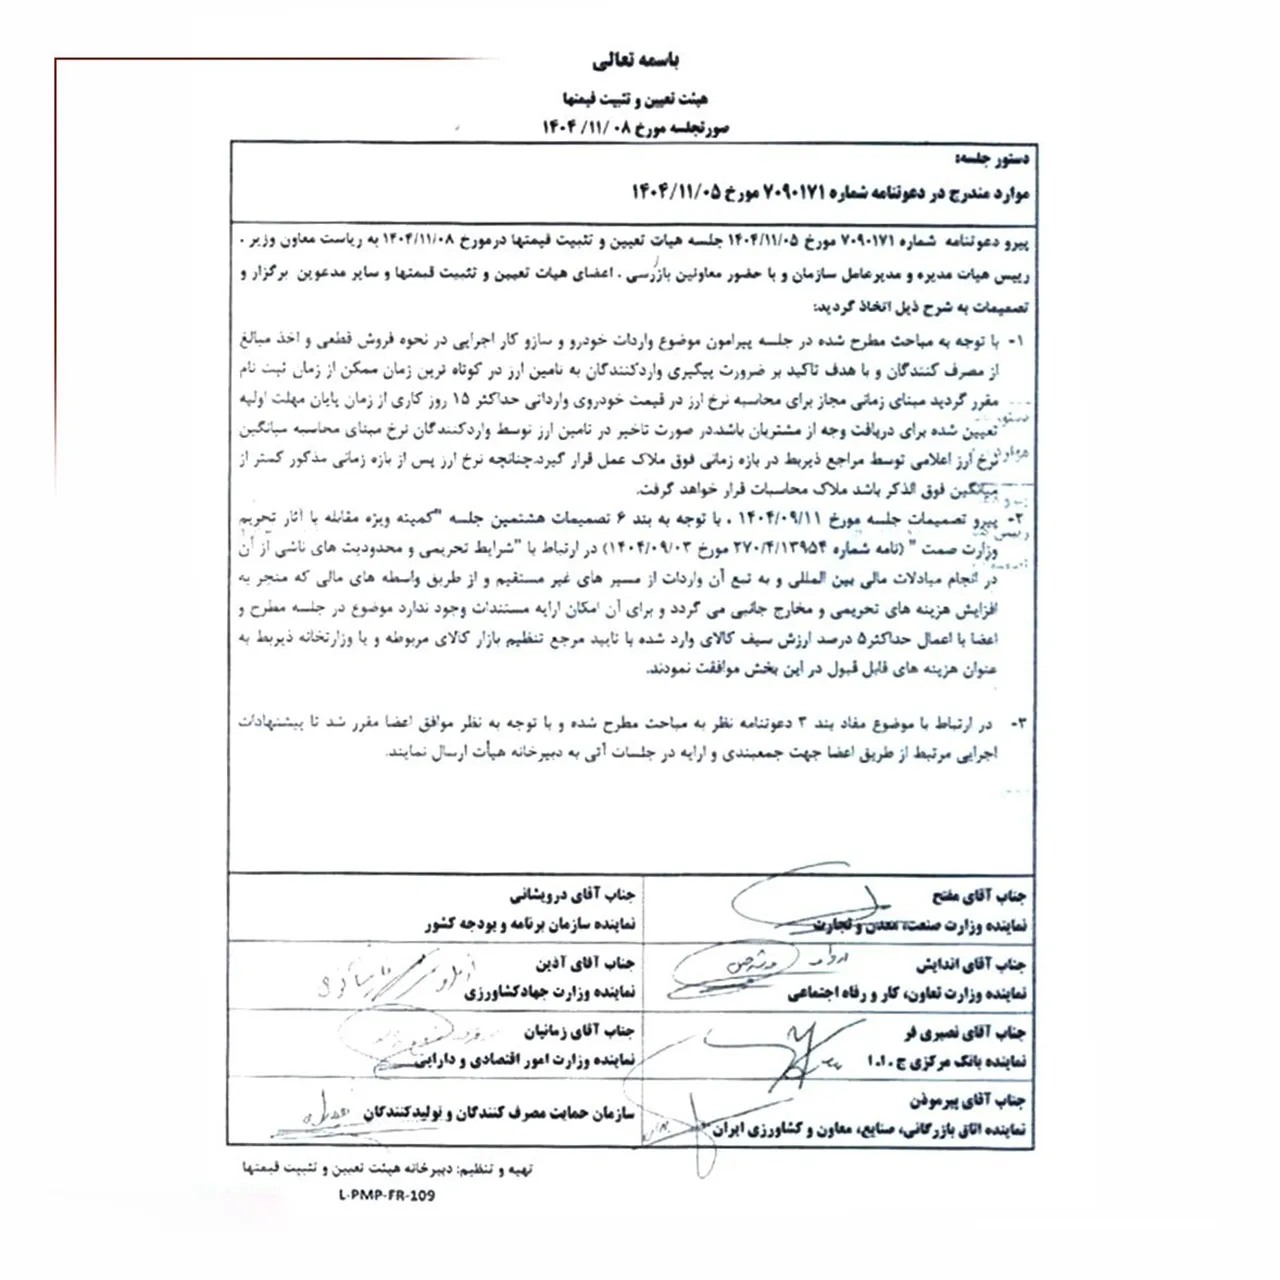 باسمه تعالی
هیئت تعیین و تثبیت قیمتها
صورتجلسه مورخ ۱۴۰۴/۱۱/۰۸
دستور جلسه:
موارد مندرج در دعوتنامه شماره ۷۰۹۰۱۷۱ مورخ ۱۴۰۴/۱۱/۰۵
پیرو دعوتنامه شماره ۷۰۹۰۱۷۱ مورخ ۱۴۰۴/۱۱/۰۵ جلسه هیات تعیین و تثبیت قیمتها درمورخ ۱۴۰۴/۱۱/۰۸ به ریاست معاون وزیر ،
رییس هیات مدیره و مدیرعامل سازمان و با حضور معاونین بازرسی ، اعضای هیات تعیین و تثبیت قیمتها و سایر مدعوین برگزار و
تصمیمات به شرح ذیل اتخاذ گردید:
۱- با توجه به مباحث مطرح شده در جلسه پیرامون موضوع واردات خودرو و سازو کار اجرایی در نحوه فروش قطعی و اخذ مبالغ
از مصرف کنندگان و با هدف تاکید بر ضرورت پیگیری واردکنندگان به تامین ارز در کوتاه ترین زمان ممکن از زمان ثبت نام
مقرر گردید مبنای زمانی مجاز برای محاسبه نرخ ارز در قیمت خودروی وارداتی حداکثر ۱۵ روز کاری از زمان پایان مهلت اولیه
تعیین شده برای دریافت وجه از مشتریان باشد.در صورت تاخیر در تامین ارز توسط واردکنندگان نرخ مبنای محاسبه میانگین
نرخ ارز اعلامی توسط مراجع ذیربط در بازه زمانی فوق ملاک عمل قرار گیرد.چنانچه نرخ ارز پس از بازه زمانی مذکور کمتر از
میانگین فوق الذکر باشد ملاک محاسبات قرار خواهد گرفت.
۲- پیرو تصمیمات جلسه مورخ ۱۴۰۴/۰۹/۱۱ ، با توجه به بند ۶ تصمیمات هشتمین جلسه "کمیته ویژه مقابله با آثار تحریم
وزارت صمت " (نامه شماره ۲۷۰/۴/۱۳۹۵۴ مورخ ۱۴۰۴/۰۹/۰۳) در ارتباط با "شرایط تحریمی و محدودیت های ناشی از آن
در انجام مبادلات مالی بین المللی و به تبع آن واردات از مسیر های غیر مستقیم و از طریق واسطه های مالی که منجر به
افزایش هزینه های تحریمی و مخارج جانبی می گردد و برای آن امکان ارایه مستندات وجود ندارد موضوع در جلسه مطرح و
اعضا با اعمال حداکثر۵ درصد ارزش سیف کالای وارد شده با تایید مرجع تنظیم بازار کالای مربوطه و یا وزارتخانه ذیربط به
عنوان هزینه های قابل قبول در این بخش موافقت نمودند.
۳- در ارتباط با موضوع مفاد بند ۳ دعوتنامه نظر به مباحث مطرح شده و با توجه به نظر موافق اعضا مقرر شد تا پیشنهادات
اجرایی مرتبط از طریق اعضا جهت جمعبندی و ارایه در جلسات آتی به دبیرخانه هیأت ارسال نمایند.
جناب آقای مفتح
نماینده وزارت صنعت، معدن و تجارت
جناب آقای درویشانی
نماینده سازمان برنامه و بودجه کشور
جناب آقای اندایش
نماینده وزارت تعاون، کار و رفاه اجتماعی
جناب آقای آذین
نماینده وزارت جهادکشاورزی
جناب آقای نصیری فر
نماینده بانک مرکزی ج .ا.ا
جناب آقای زمانیان
نماینده وزارت امور اقتصادی و دارایی
جناب آقای پیرموذن
نماینده اتاق بازرگانی، صنایع، معاون و کشاورزی ایران
سازمان حمایت مصرف کنندگان و تولیدکنندگان
تهیه و تنظیم: دبیرخانه هیئت تعیین و تثبیت قیمتها
L-PMP-FR-109